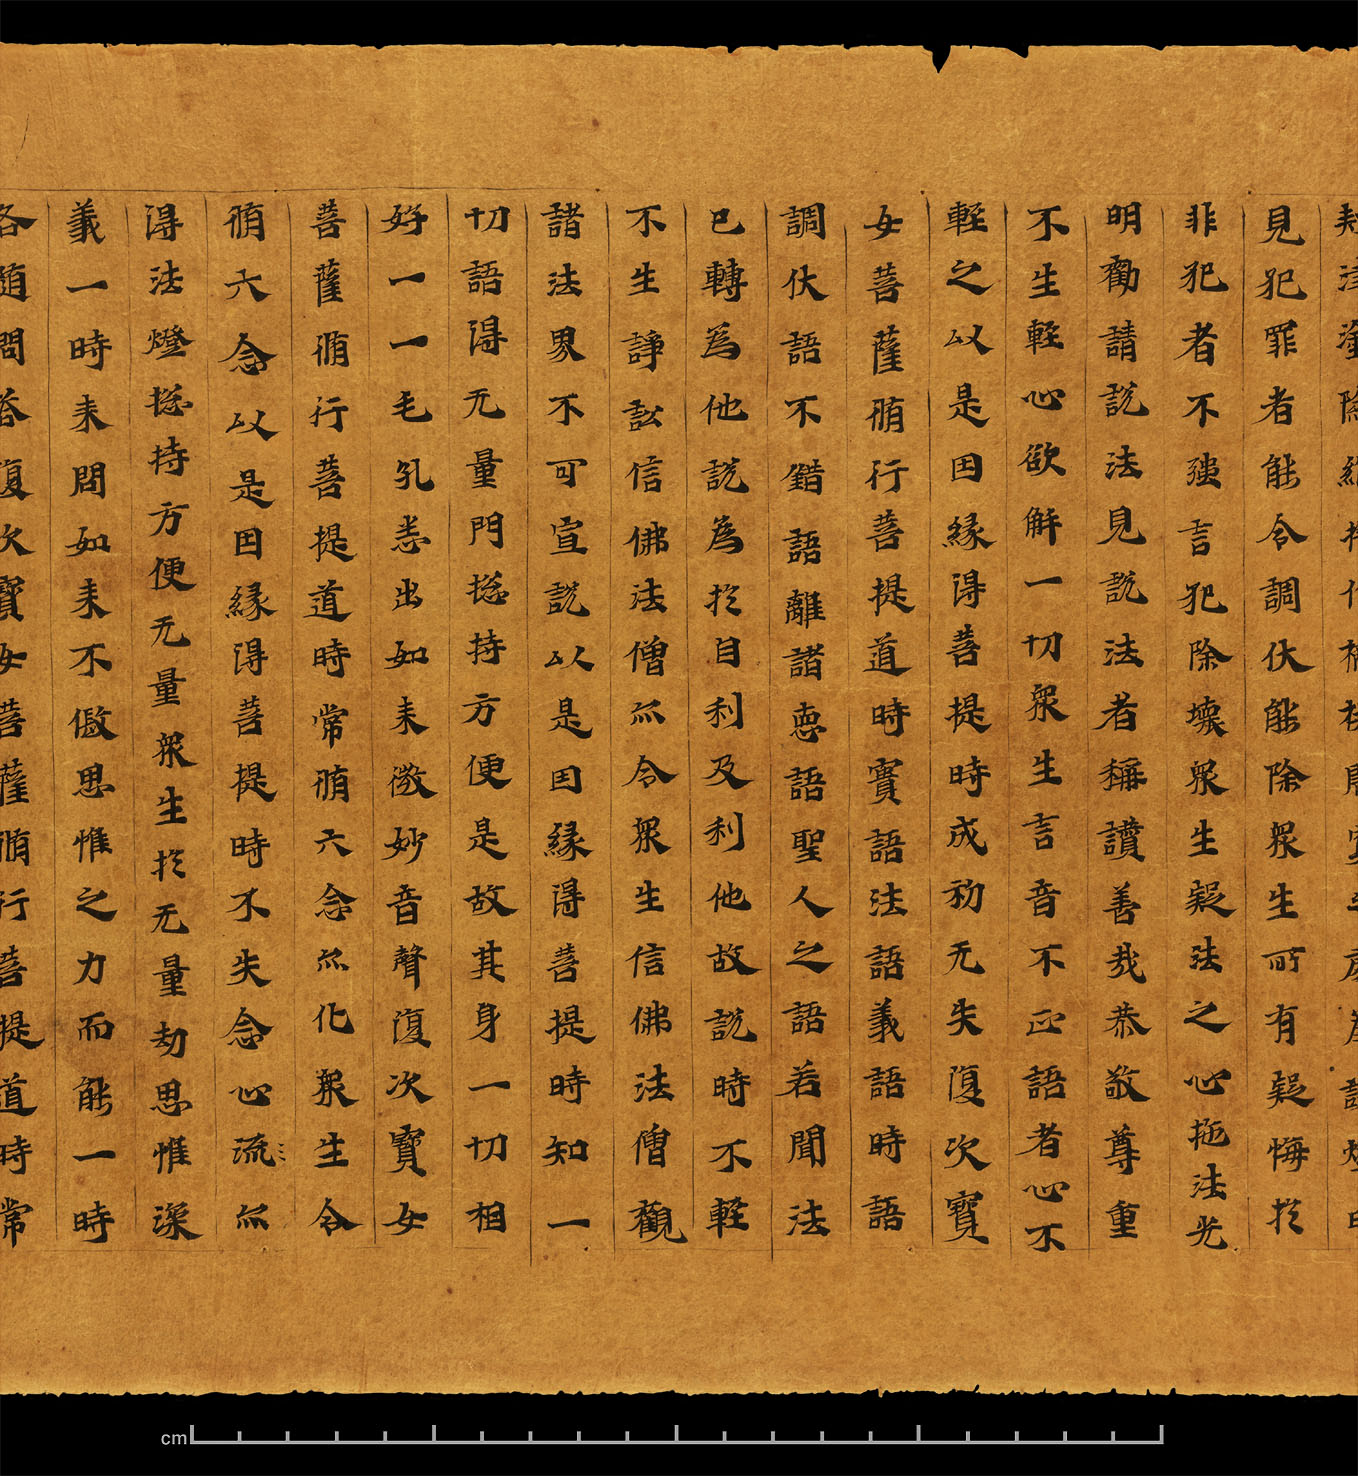 見犯罪者能令調伏能除眾生所有疑悔於
非犯者不强言犯除壞眾生疑法之心施法光
明勸請說法見說法者稱讚善哉恭敬尊重
不生輕心欲解一切眾生言音不正語者心不
輕之以是因緣得菩提時成初无失復次寶
女菩薩脩行菩提道時實語法語義語時語
調伏語不錯語離諸惡語聖人之語若聞法
已轉為他說為於自利及利他故說時不輕
不生諍訟信佛法僧亦令眾生信佛法僧觀
諸法界不可宣說以是因緣得菩提時知一
切語得无量門捴持方便是故其身一切相
好一一毛孔悉出如来微妙音聲復次寶女
菩薩脩行菩提道時常脩六念亦化眾生令
脩六念以是因緣得菩提時不失念心流亦
得法燈捴持方便无量眾生於无量劫思惟深
義一時来問如来不假思惟之力而能一時
各随問答復次寶女菩薩脩行菩提道時常
cm